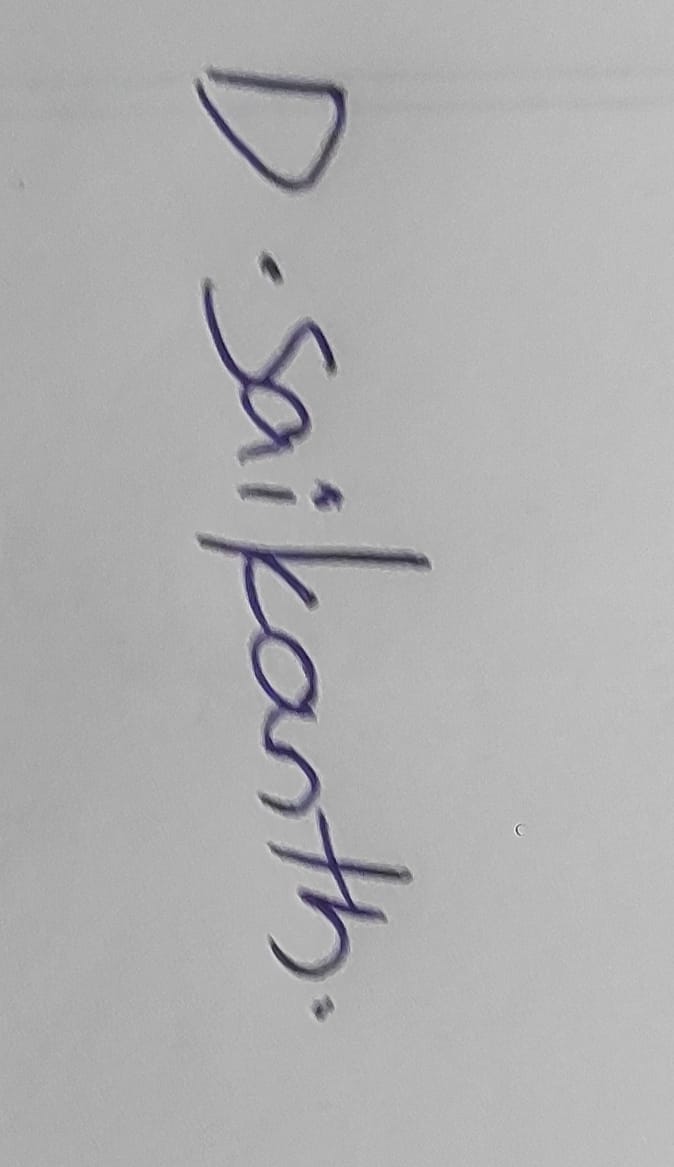 D. Saikanth.